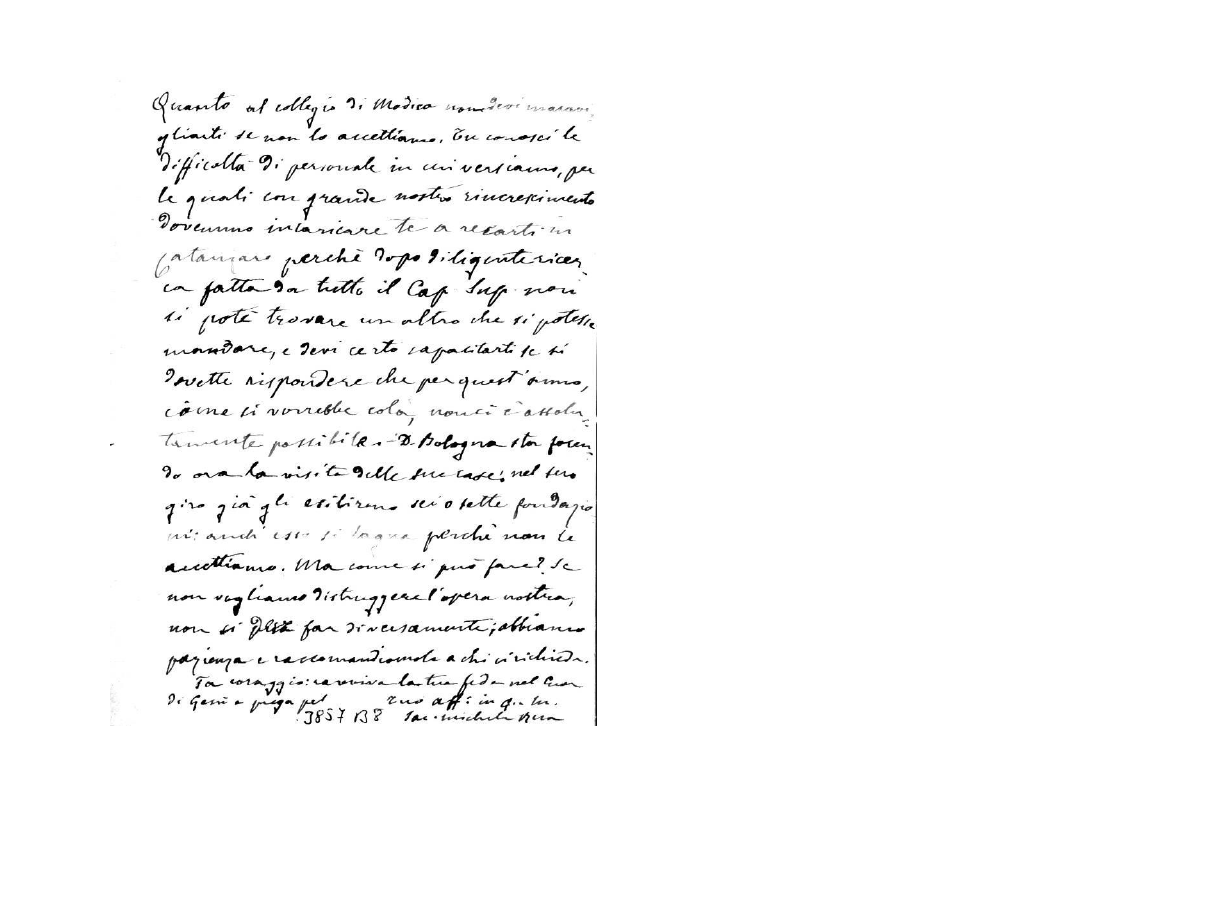 Quanto al collegio di Modica non devi maravi
gliarti se non lo accettiamo. Tu conosci le
difficoltà di personale in cui versiamo, per
le quali con grande nostro rincrescimento
dovemmo incaricare te a recarti in
Catanzaro perchè dopo diligente ricer
ca fatta da tutto il Cap. Sup. non
si potè trovare un altro che si potesse
mandare, e devi certo capacitarti se si
dovette rispondere che per quest'anno,
come si vorrebbe colà, non ci è assolu-
tamente possibile. D. Bologna sta facen-
do ora la visita delle sue case; nel suo
giro già gli esibirono sei o sette fondazio
ni: anch'esso si lagna perchè non le
accettiamo. Ma come si può fare? Se
non vogliamo distruggere l'opera nostra,
non si può far diversamente; abbiamo
pazienza e raccomandiamola a chi ci richiede.
Fa coraggio: ravviva la tua fede nel Cuor
di Gesù e prega pel tuo aff: in G. M.
3857 B8 Sac. Michele Rua